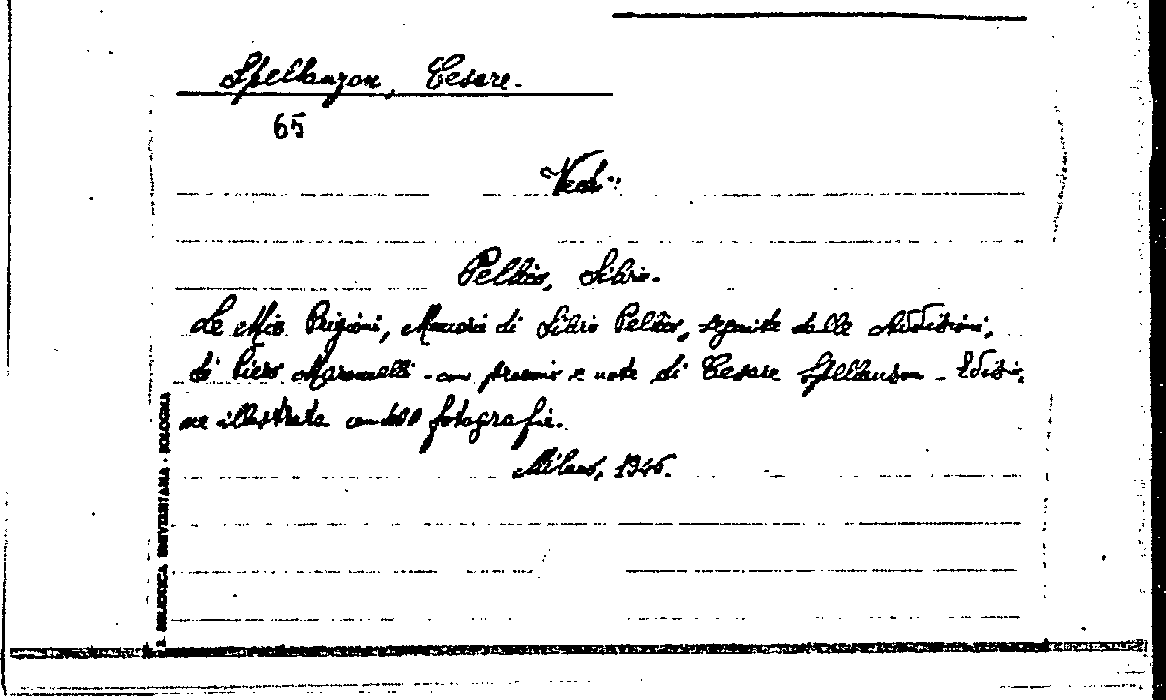 Spellanzon, Cesare.
65
Vedi:
Pellico, Silvio.
Le Mie Prigioni, Memorie di Silvio Pellico, seguite dalle Addizioni,
di Piero Maroncelli - con proemio e note di Cesare Spellanzon - Edizio-
ne illustrata con fotografie.
Milano, 1946.
R. BIBLIOTECA UNIVERSITARIA - BOLOGNA